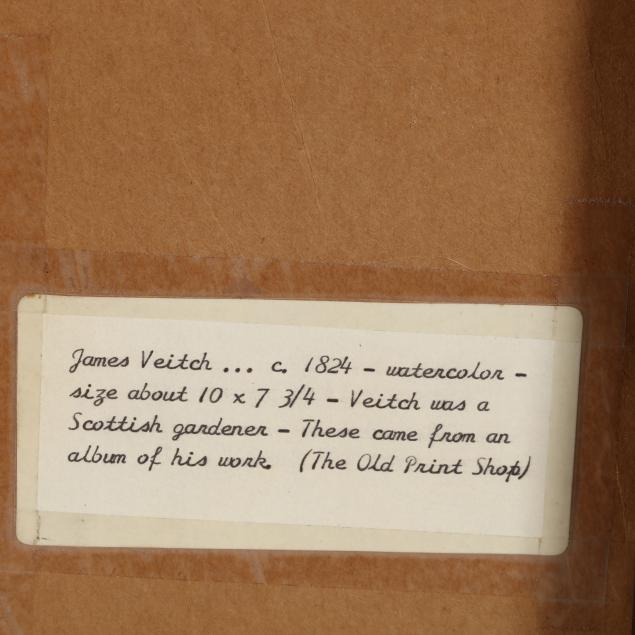 James Veitch ... c. 1824 - watercolor -
size about 10 x 7 3/4 - Veitch was a
Scottish gardener - These came from an
album of his work. (The Old Print Shop)